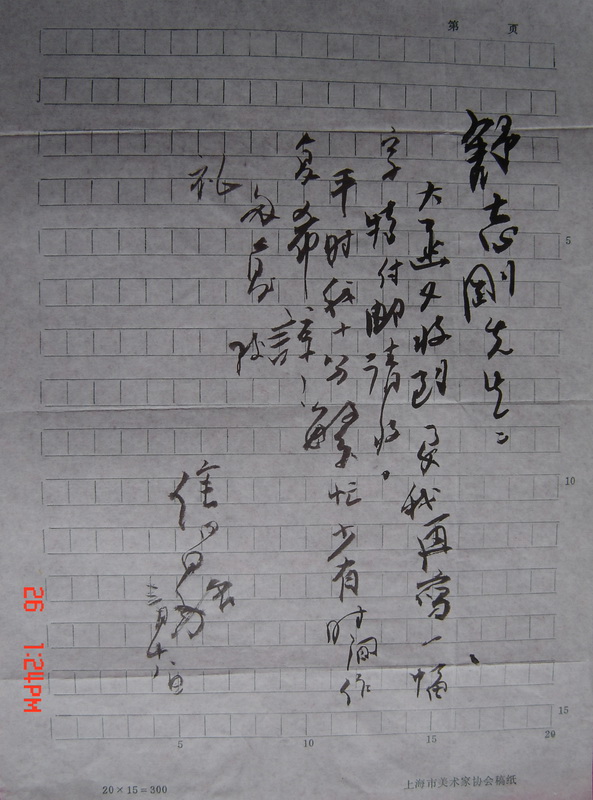 第 页
舒志刚先生:
大函又收到 要我再写一幅
字、特付邮请收。
平时我十分繁忙少有时间作
复希谅!
每复
礼
三月十八日
5
10
15
5 10 15 20
20×15=300
上海市美术家协会稿纸
26 1:24PM